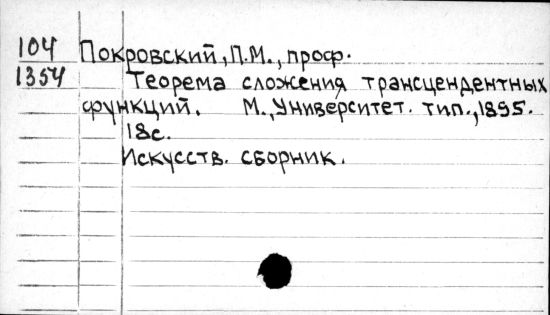 104 Покровский, П.М., проф.
1354 Теорема сложения трансцендентных
функций. М., Университет. тип., 1895.
18с.
Искусств. сборник.